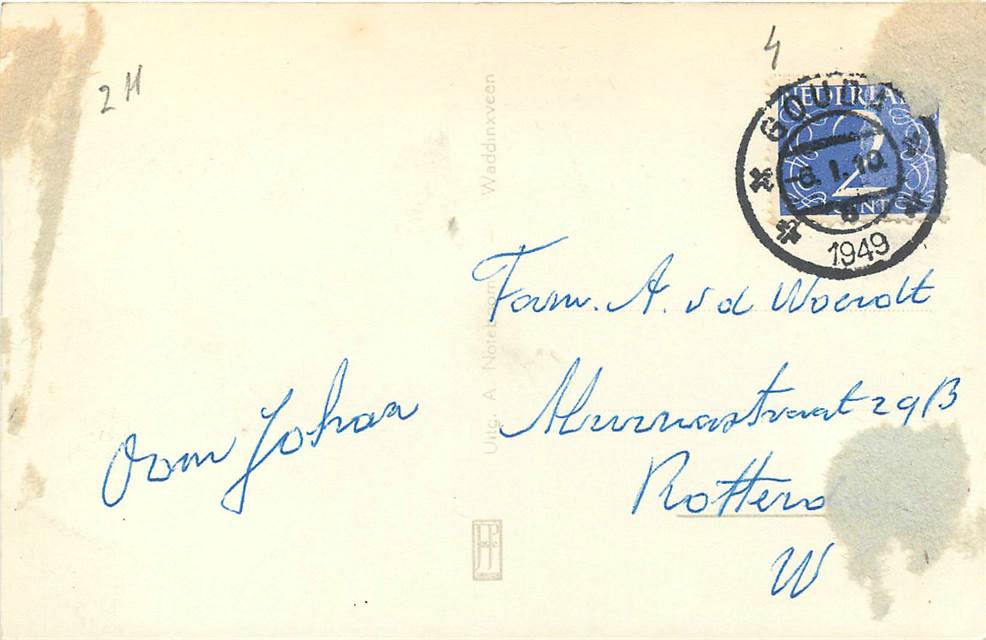 2 H
4
NEDERLAND
2
CENT
GOUDA
-6.1.10.
1949
Uitg. A Noteboom - Waddinxveen
Fam. A. v d Woerdt
29 B
Rotterd
W
Oom Johan